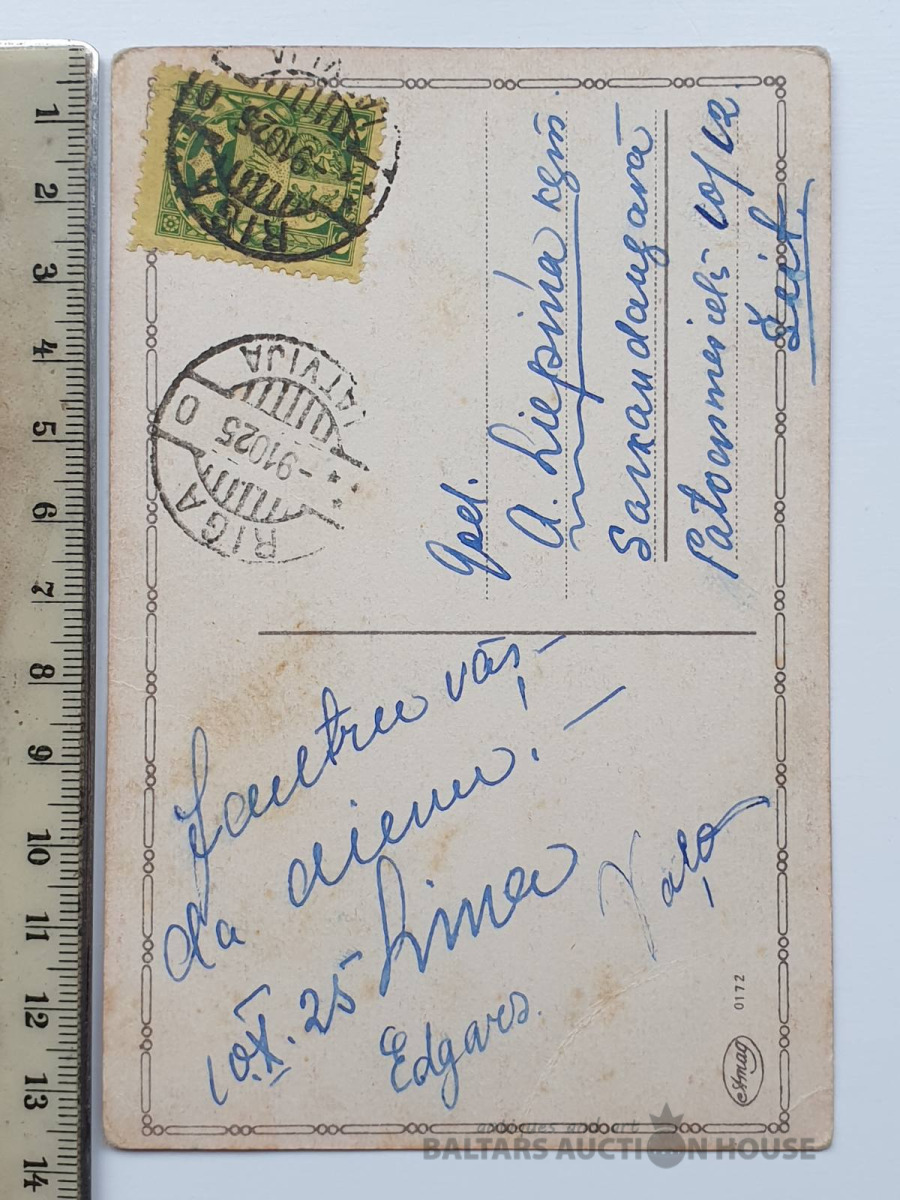 RIGA
-9.10.25
LATVIJA
0
RIGA
-9.10.25
01
God.
A. Liepiņa kgm.
Sarkandaugavā
10/12.
Šeit
vār-
da dienu! —
Lima
10.X.25
Edgars.
Amag
0172
antiques and art
BALTARS AUCTION HOUSE
1
2
3
4
5
6
7
8
9
10
11
12
13
14